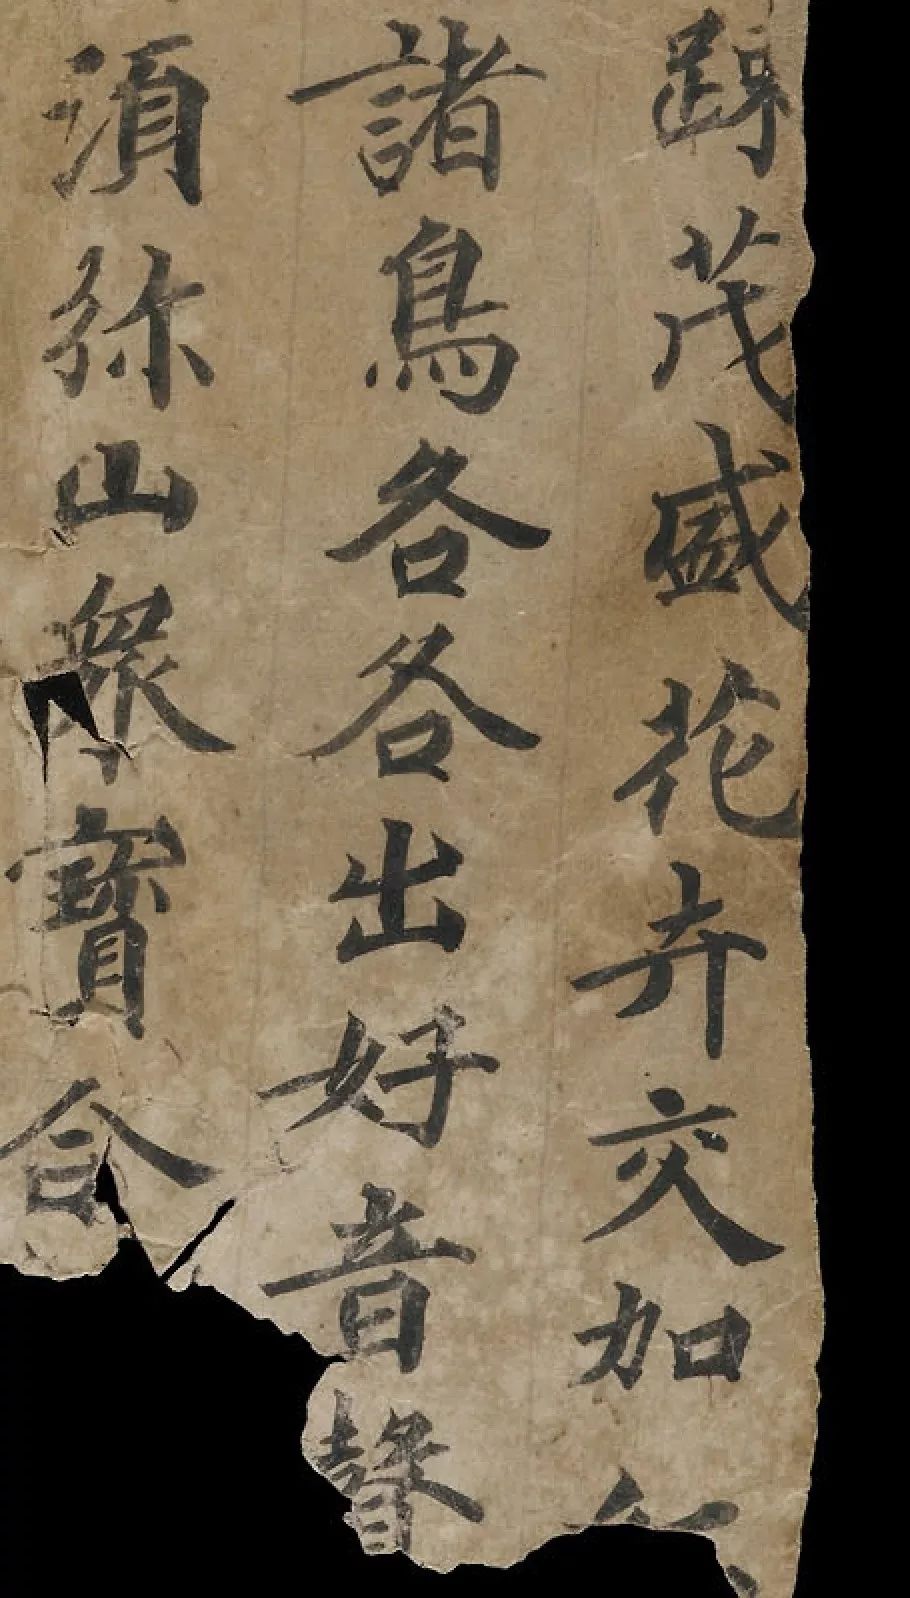 踈茂盛花卉交加
諸鳥各各出好音聲
湏弥山衆寶合